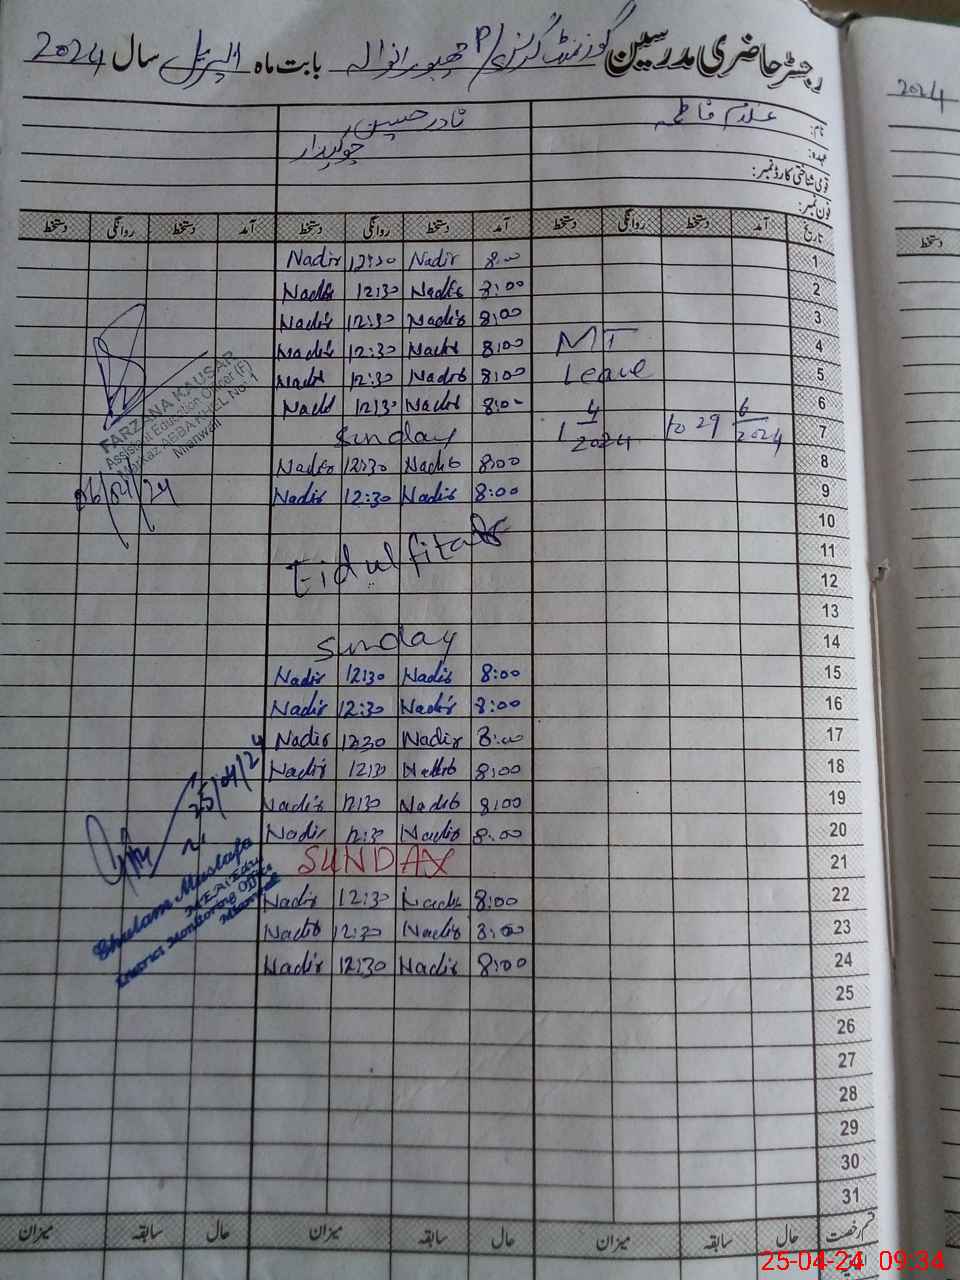 رجسٹر حاضری مدرسین گورنمنٹ گرلز P/ چھبورانوالہ بابت ماہ اپریل سال 2024
2024
نام: غلام فاطمہ نادر حسین
عہدہ: چوکیدار
قومی شناختی کارڈ نمبر:
فون نمبر:
تاریخ آمد دستخط روانگی دستخط آمد دستخط روانگی دستخط آمد دستخط روانگی دستخط
دستخط
1 8:00 Nadir 12:30 Nadir
2 8:00 Nadir 12:30 Nadir
3 8:00 Nadir 12:30 Nadir
4 MT 8:00 Nadir 12:30 Nadir
5 Leave 8:00 Nadir 12:30 Nadir
6 8:00 Nadir 12:30 Nadir
7 1 4/2024 to 29 6/2024 Sunday
8 8:00 Nadir 12:30 Nadir
9 8:00 Nadir 12:30 Nadir
10
11 Eid ul fitar
12
13
14 Sunday
15 8:00 Nadir 12:30 Nadir
16 8:00 Nadir 12:30 Nadir
17 8:00 Nadir 12:30 Nadir
18 8:00 Nadir 12:30 Nadir
19 8:00 Nadir 12:30 Nadir
20 8:00 Nadir 12:30 Nadir
21 SUNDAY
22 8:00 Nadir 12:30 Nadir
23 8:00 Nadir 12:30 Nadir
24 8:00 Nadir 12:30 Nadir
25
26
27
28
29
30
31
FARZANA KAUSAR
Assistant Education Officer (F)
Markaz ABBA KHEL No. 1
Mianwali
06/04/24
25/04/24
Ghulam Mustafa
District Monitoring Officer
Mianwali
قسم رخصت حال سابقہ میزان حال سابقہ میزان حال سابقہ میزان
25-04-24 09:34